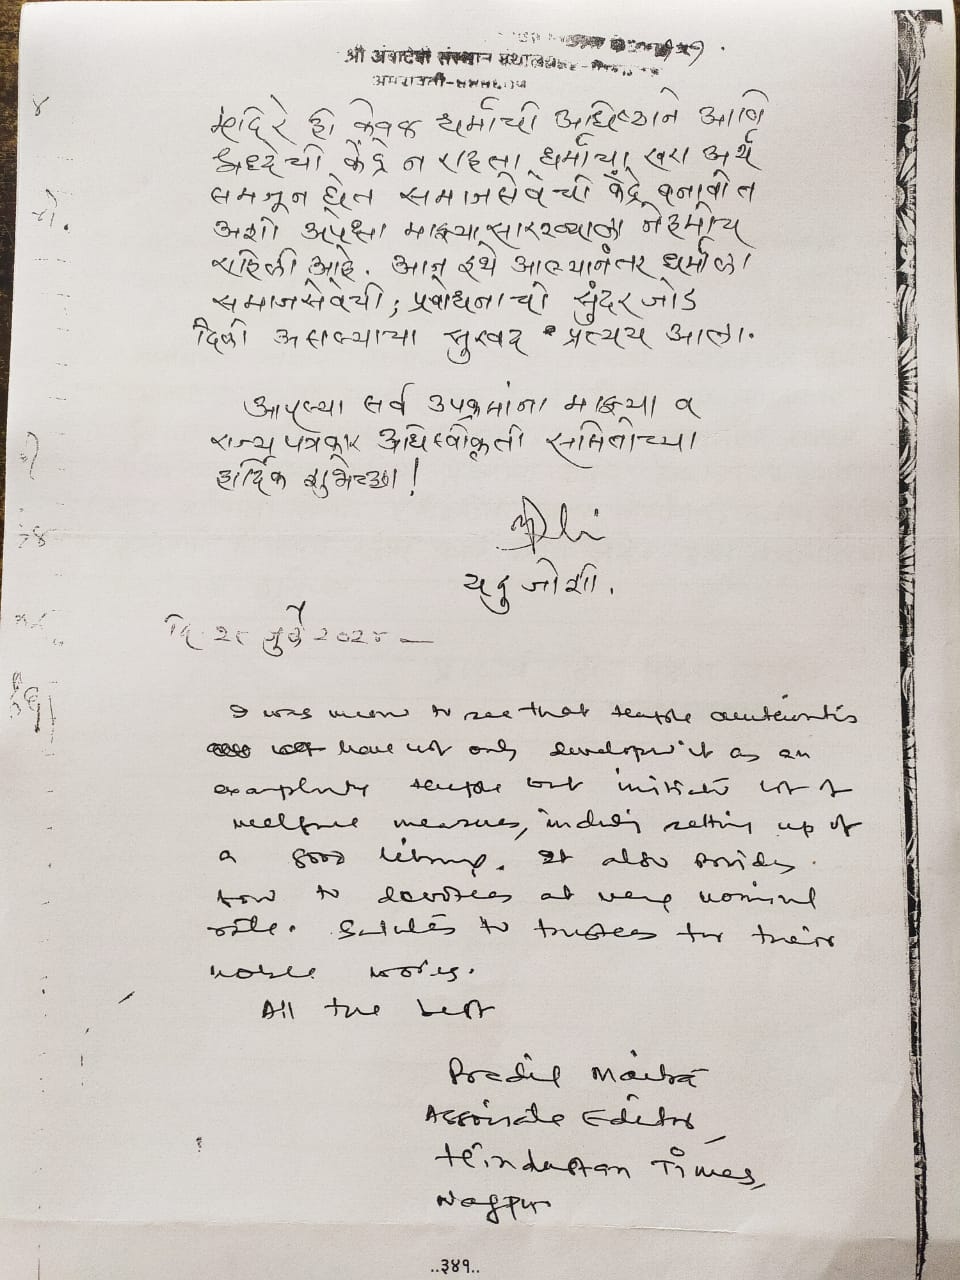 श्री अंबादेवी संस्थान ग्रंथालय
अमरावती
मंदिरे ही केवळ धर्माची अधिष्ठाने आणि
श्रध्देची केंद्रे न राहता धर्माचा खरा अर्थ
समजून घेत समाजसेवेची केंद्रे बनावीत
अशी अपेक्षा माझ्यासारख्याला नेहमीच
राहिली आहे. आज इथे आल्यानंतर धर्माला
समाजसेवेची, प्रबोधनाची सुंदर जोड
दिली असल्याचा सुखद प्रत्यय आला.
आपल्या सर्व उपक्रमांना माझ्या व
राज्य पत्रकार अधिस्वीकृती समितीच्या
हार्दिक शुभेच्छा!
यदु जोशी.
दि. जुलै
I was to see that temple
have not only developed it as an
temple but lot of
welfare measures, including setting up of
a good library. It also provides
to devotees at very nominal
rate. Salutes to trustees for their
noble works.
All the best
Pradip Maitra
Associate Editor,
Hindustan Times,
Nagpur
..३४१..